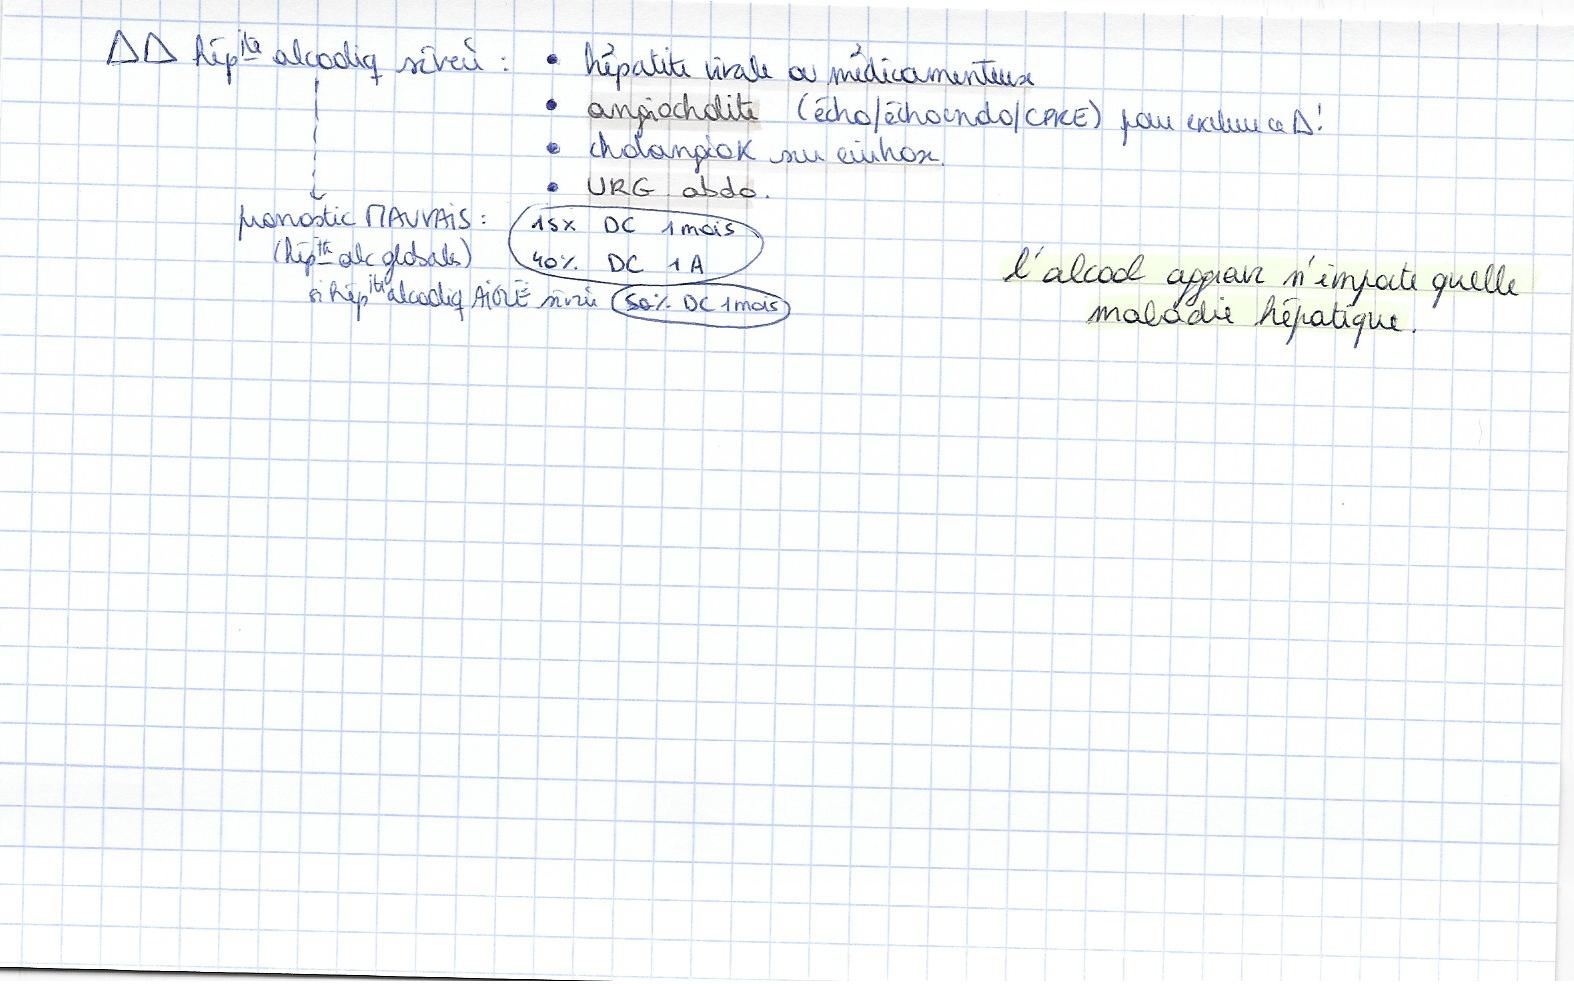 ΔΔ hép^ite alcooliq sévère : • hépatite virale ou médicamenteuse
• angiocholite (écho/échoendo/CPRE) pour exclure ce Δ!
• cholangioK sur cirrhose.
• URG abdo.
pronostic MAUVAIS : 15% DC 1 mois
(hép^ite alc globale) 40% DC 1 A
si hép^ite alcooliq AIGUË sévère 50% DC 1 mois
l'alcool aggrave n'importe quelle
maladie hépatique.